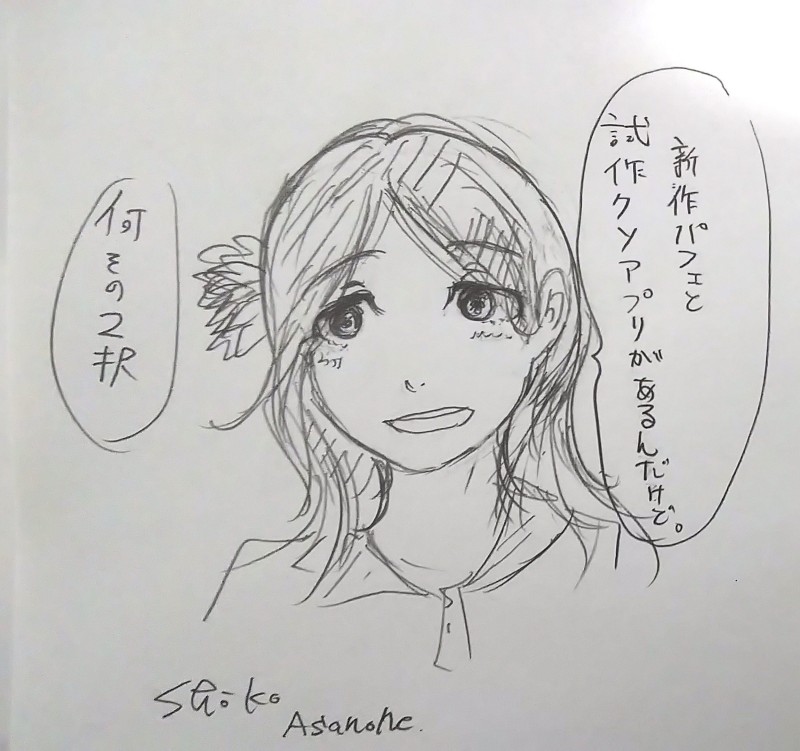 新作パフェと
試作クソアプリがあるんだけど。
何その2択
Shōko
Asanohe.